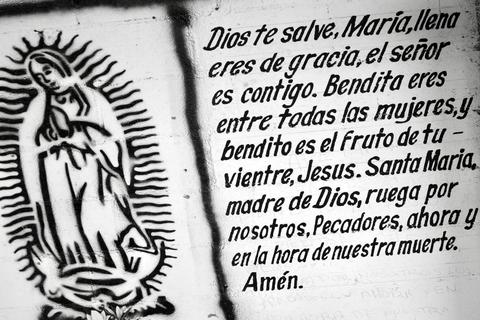 Dios te salve, María, llena
eres de gracia, el señor
es contigo. Bendita eres
entre todas las mujeres, y
bendito es el fruto de tu -
vientre, Jesus. Santa Maria,
madre de Dios, ruega por
nosotros, Pecadores, ahora y
en la hora de nuestra muerte.
Amén.